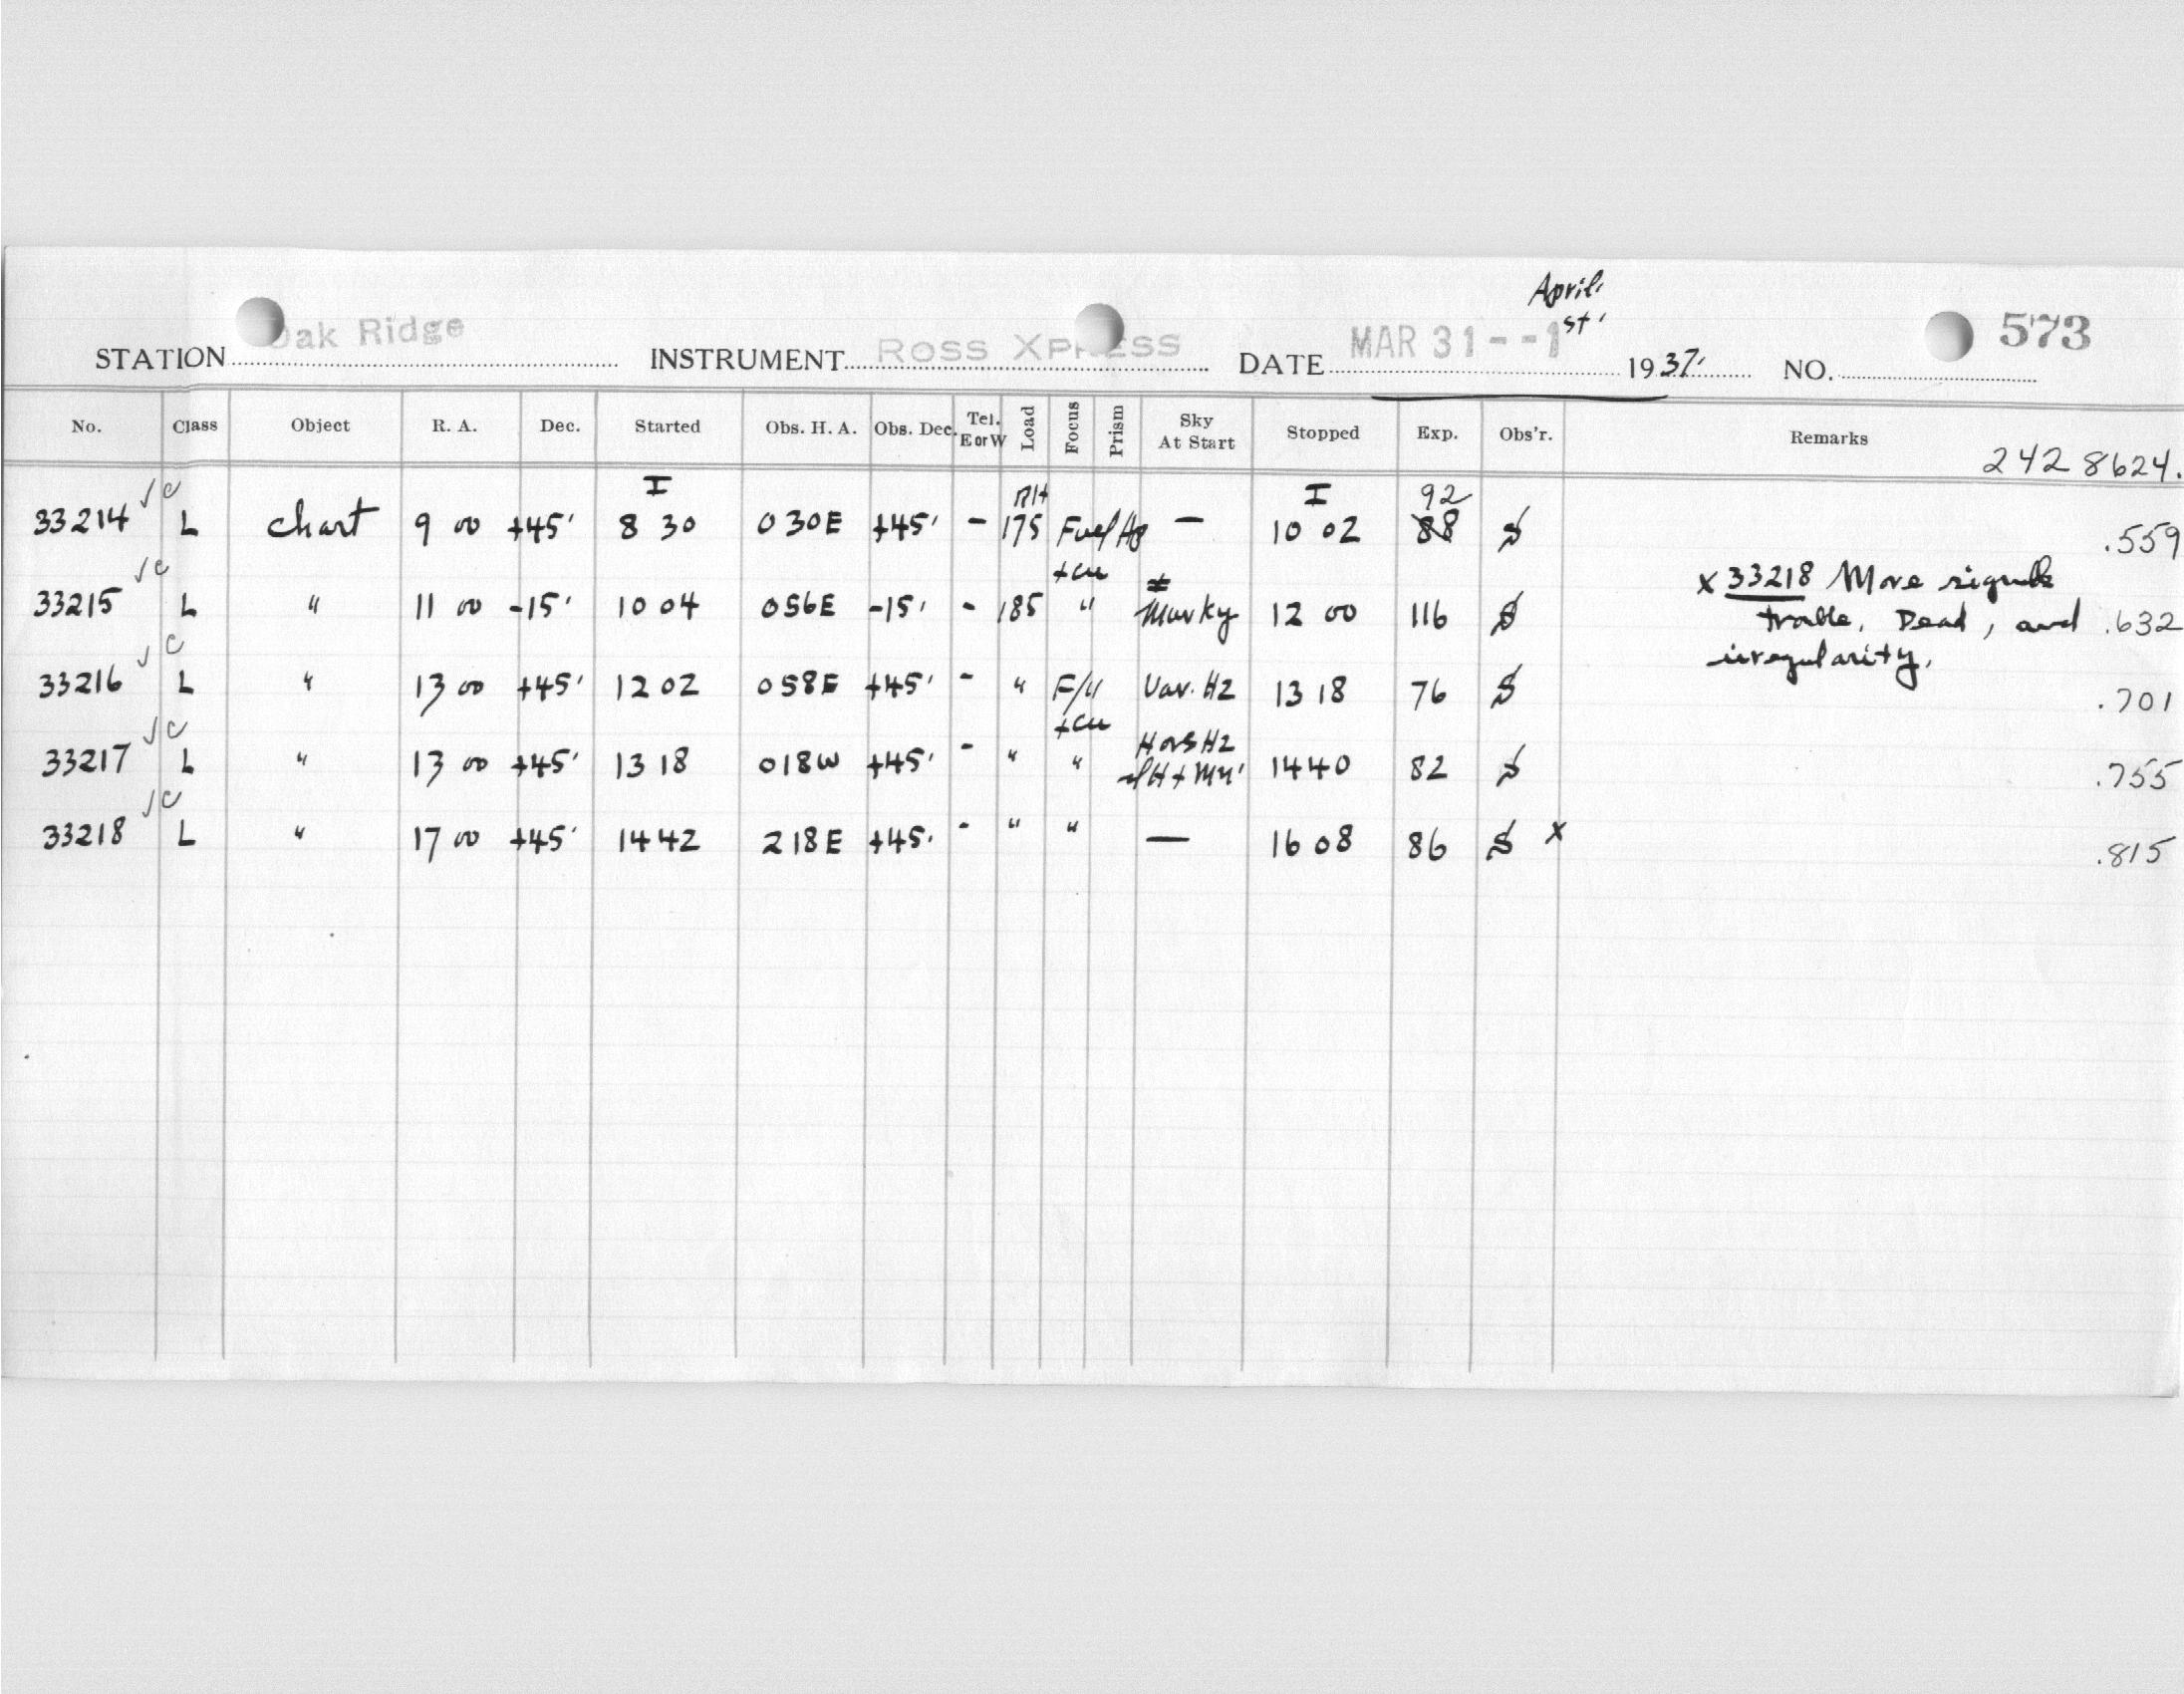 April
STATION Oak Ridge INSTRUMENT ROSS XPRESS DATE MAR 31--1 st 1937 NO. 573
No. Class Object R. A. Dec. Started Obs. H. A. Obs. Dec. Tel. E or W Load Focus Prism Sky At Start Stopped Exp. Obs'r. Remarks
242 8624.
I I 92
33214 √c L chart 9 00 +45' 8 30 030E +45' - 175 - 10 02 88 .559
33215 √c L " 11 00 -15' 10 04 056E -15' - 185 " Murky 12 00 116 .632
x 33218 More signals
trouble. Dead, and
irregularity.
33216 √c L " 13 00 +45' 12 02 058E +45' - " Var. Hz 13 18 76 .701
33217 √c L " 13 00 +45' 13 18 018W +45' - " " 14 40 82 .755
33218 √c L " 17 00 +45' 14 42 218E +45' - " " — 16 08 86 x .815